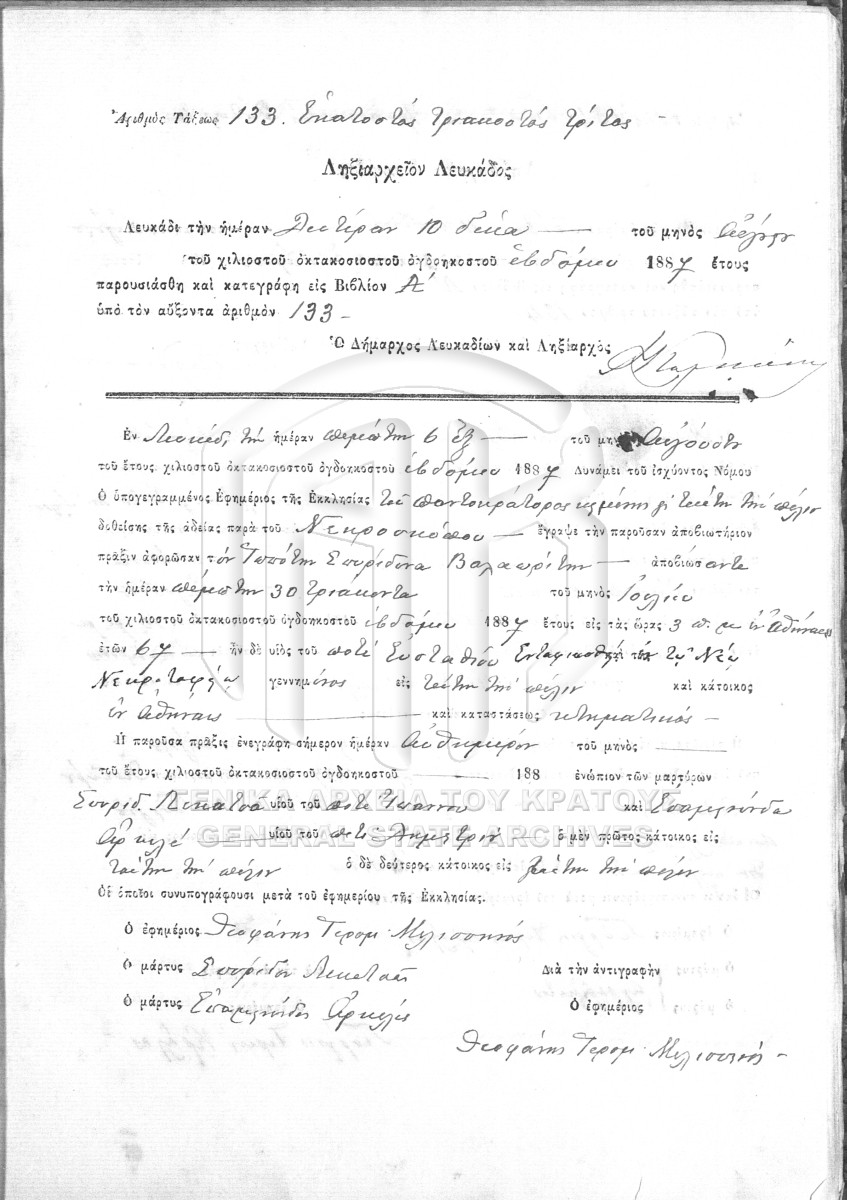 Ἀριθμὸς Τάξεως 133. Ἑκατοστός τριακοστός τρίτος
Ληξιαρχεῖον Λευκάδος
Λευκάδι τὴν ἡμέραν Δευτέραν 10 δέκα — τοῦ μηνὸς
τοῦ χιλιοστοῦ ὀκτακοσιοστοῦ ὀγδοηκοστοῦ ἑβδόμου 1887 ἔτους
παρουσιάσθη καὶ κατεγράφη εἰς Βιβλίον Α΄
ὑπὸ τὸν αὔξοντα ἀριθμὸν 133 –
Ὁ Δήμαρχος Λευκαδίων καὶ Ληξίαρχὸς
Ἐν Λευκάδι τὴν ἡμέραν πέμπτην 6 ἕξ — τοῦ μη Αὐγούστου
τοῦ ἔτους χιλιοστοῦ ὀκτακοσιοστοῦ ὀγδοηκοστοῦ ἑβδόμου 1887 Δυνάμει τοῦ ἰσχύοντος Νόμου
Ὁ ὑπογεγραμμένος Ἐφημέριος τῆς Ἐκκλησίας τοῦ Παντοκράτορος ταύτην τὴν πόλιν
δοθείσης τῆς ἀδείας παρὰ τοῦ Νεκροσκόπου — ἔγραψε τὴν παροῦσαν ἀποβιωτήριον
πρᾶξιν ἀφορῶσαν τόν Ἱππότην Σπυρίδωνα Βαλαωρίτην — ἀποβιώσαντα
τὴν ἡμέραν πέμπτην 30 τριάκοντα τοῦ μηνὸς Ἰουλίου
τοῦ χιλιοστοῦ ὀκτακοσιοστοῦ ὀγδοηκοστοῦ ἑβδόμου 1887 ἔτους εἰς τὰς ὥρας 3 π. μ. ἐν Ἀθήναις
ἐτῶν 67 — ἦν δὲ υἱὸς τοῦ ποτέ Εὐσταθίου Ἐνταφιασθεὶς ἐν τῷ Νέῳ
Νεκροταφείῳ γεννημένος εἰς ταύτην τὴν πόλιν καὶ κάτοικος
ἐν Ἀθήναις — καὶ καταστάσεως κτηματικός –
Ἡ παροῦσα πρᾶξις ἐνεγράφη σήμερον ἡμέραν Αὐθημερόν τοῦ μηνὸς —
τοῦ ἔτους χιλιοστοῦ ὀκτακοσιοστοῦ ὀγδοηκοστοῦ — 188 ἐνώπιον τῶν μαρτύρων
Σπυρίδ. Λεκατσᾶ υἱοῦ τοῦ ποτὲ Ἰωάννου καὶ Ἐπαμεινώνδα
υἱοῦ τοῦ ποτὲ Δημητρίου ὁ μὲν πρῶτος κάτοικος εἰς
ταύτην τὴν πόλιν ὁ δὲ δεύτερος κάτοικος εἰς ταύτην τὴν πόλιν
Οἱ ὁποῖοι συνυπογράφουσι μετὰ τοῦ ἐφημερίου τῆς Ἐκκλησίας.
Ὁ ἐφημέριος Θεοφάνης Ἱερομ. Μελισσηνός
Ὁ μάρτυς Σπυρίδων Λεκατσᾶς Διὰ τὴν ἀντιγραφὴν
Ὁ μάρτυς Ἐπαμεινώνδας Ὁ ἐφημέριος
Θεοφάνης Ἱερομ. Μελισσηνός –
ΓΕΝΙΚΑ ΑΡΧΕΙΑ ΤΟΥ ΚΡΑΤΟΥΣ
GENERAL STATE ARCHIVES